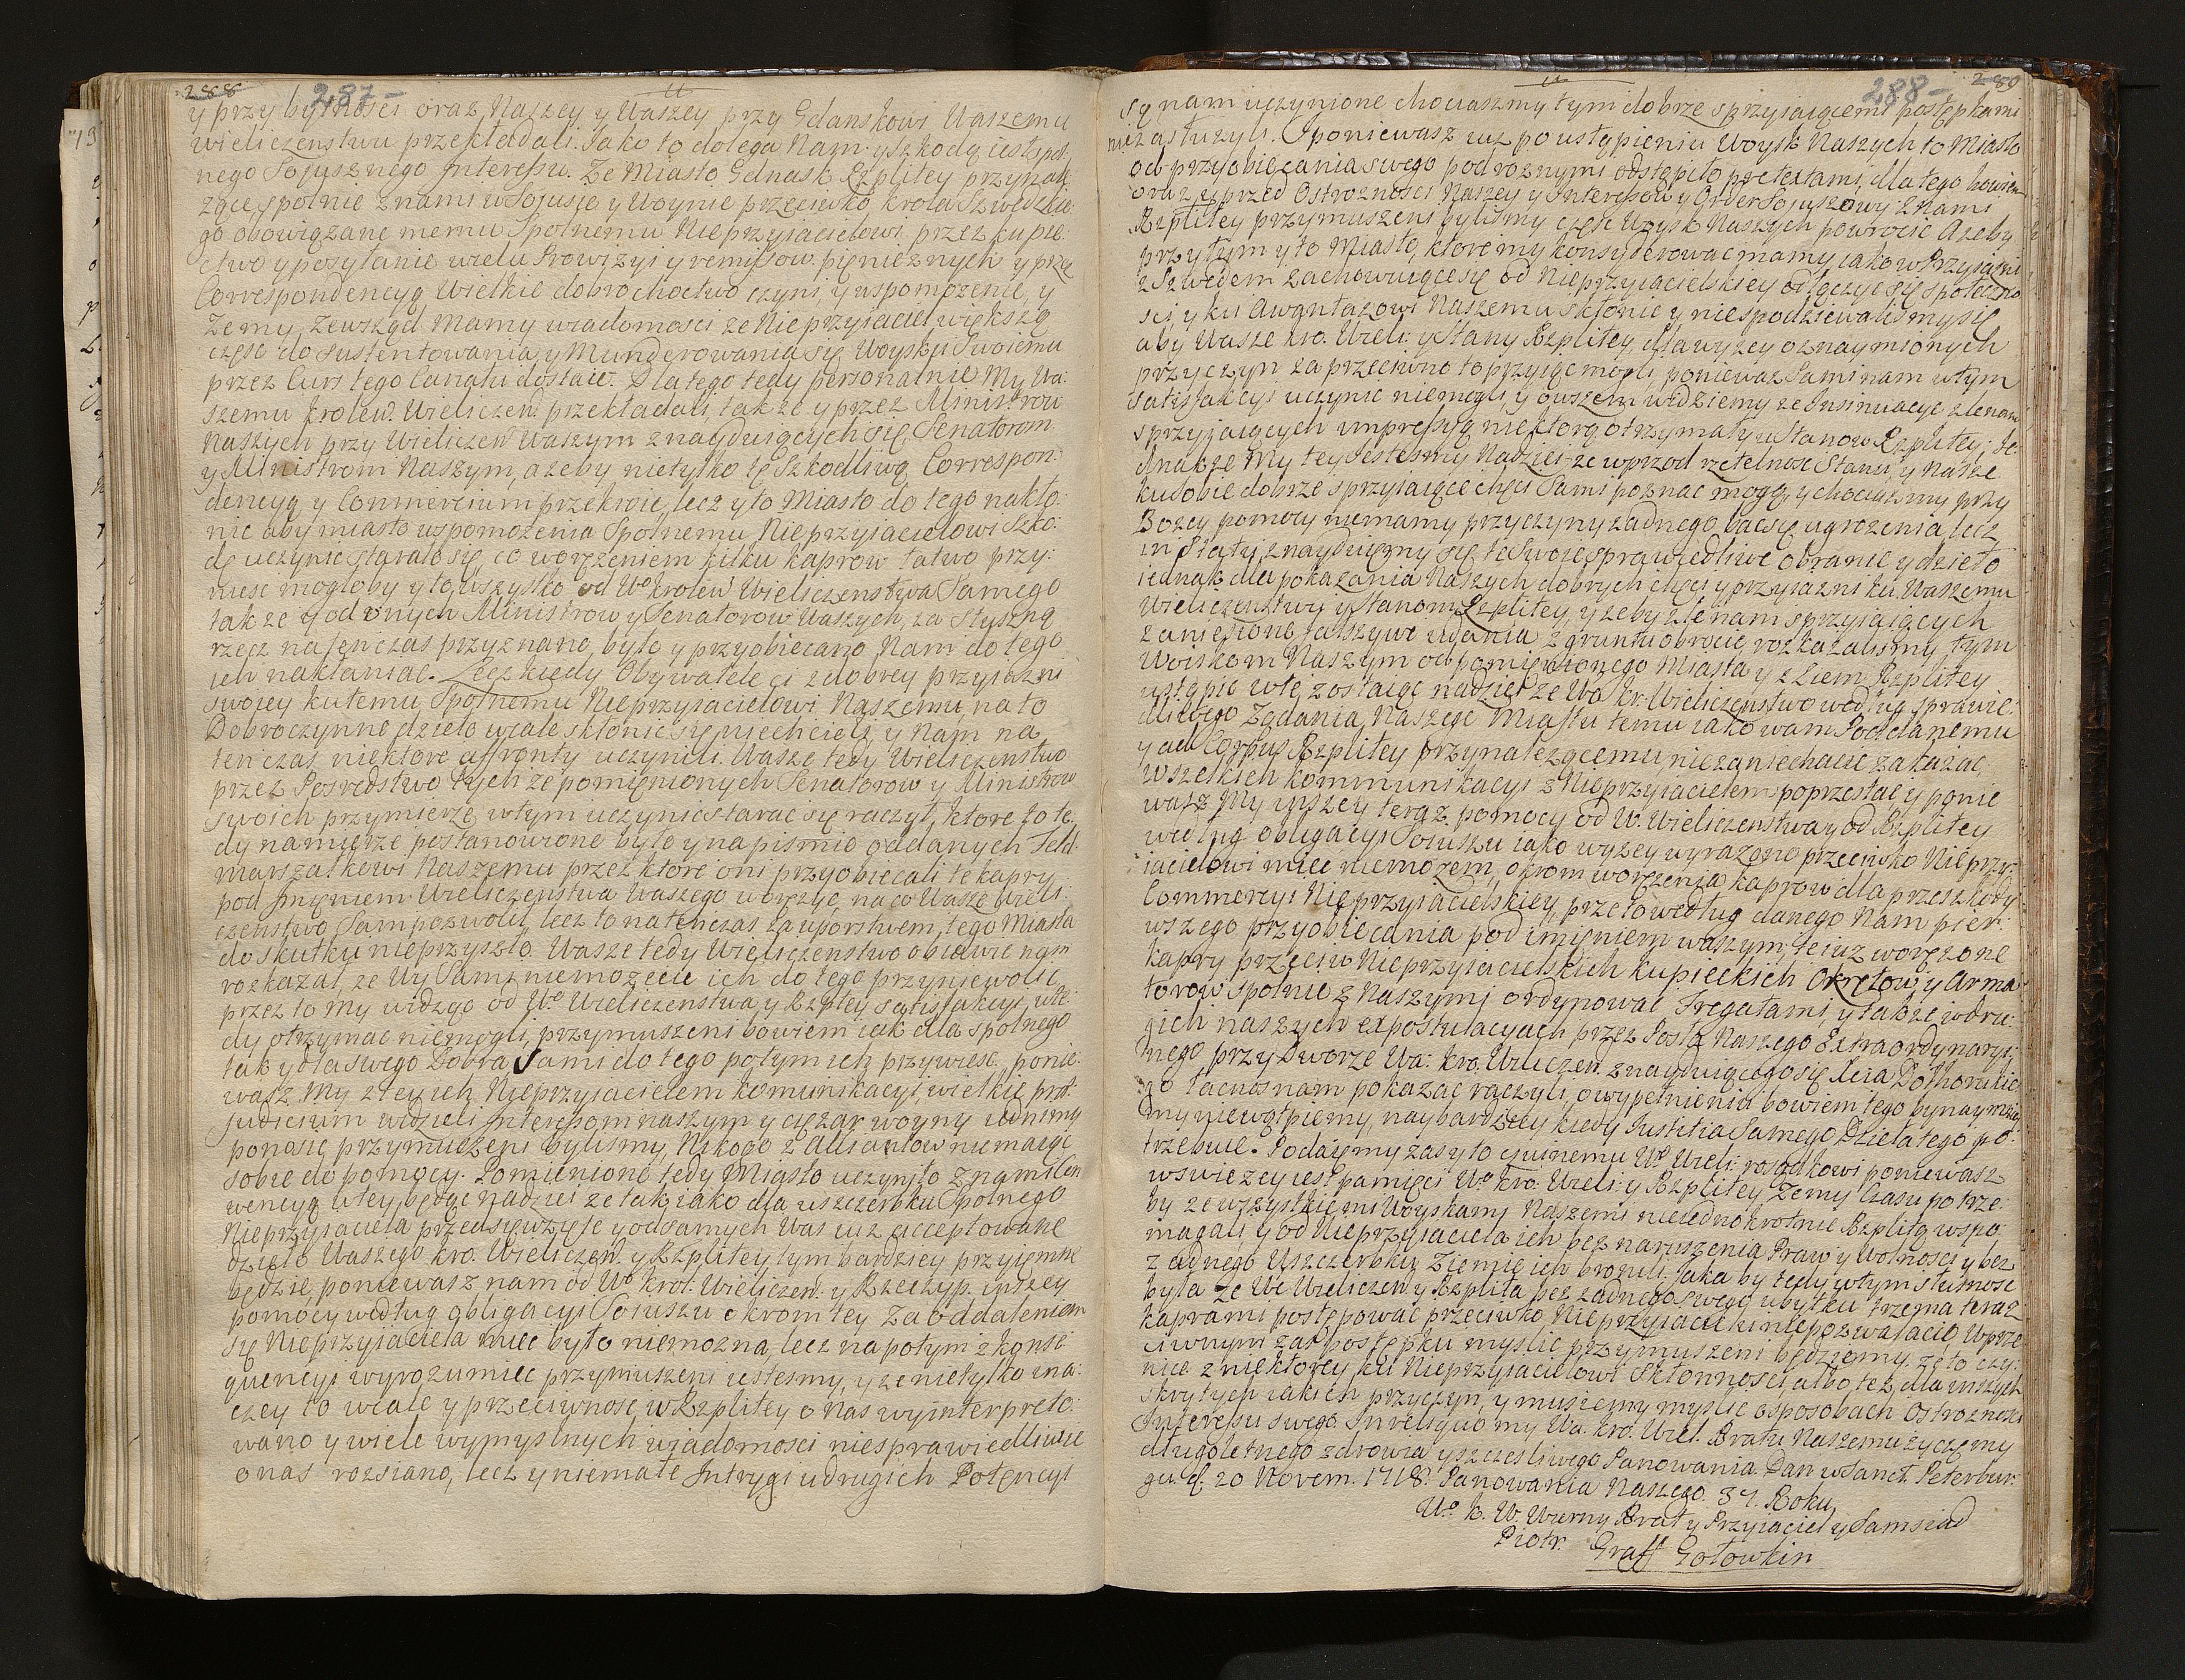 288 287-
y przy bytnosci oraz Naszey y Waszey przy Gdanskowi Waszemu
wieliczenstwu przekładali. Jako to dolega Nam y szkodą iest spol-
nego Sojusznego Interessu. Ze Miasto Gdnask Rzplitey przynale-
żące, spolnie z nami w Sojusie y Woynie przeciwko krola Szwedzkie-
go obowiązane memu Spolnemu Nieprzyiacielowi przez kupie-
ctwo y posyłanie wielu Prowizyi y remissow pięnieznych y przez
Correspondencyą Wielkie dobrochoctwo czyni, y wspomożenie, y
Zemy, zewsząd Mamy wiadomosci ze Nieprzyiaciel większą
częsc do sustentowania y Munderowania się Woysku Swoiemu
przez Curs tego Canału dostaie. Dla tego tedy personalnie My Wa-
szemu krolew. Wieliczen. przekładali, także y przez Ministrow
Naszych przy Wieliczen Waszym znayduiących się, Senatorom
y Ministrom Naszym, azeby nietylko tę Szkodliwą Correspon-
dencyą y Commercium przekroic, lecz y to Miasto do tego nakło-
nic aby miasto wspomożenia Spolnemu Nieprzyiacielowi Szko-
dę uczynic starało się, co worężeniem kilku kaprow łatwo przy-
niesc mogłoby y to wszystko od Wo krolew Wieliczenstwa Samego
także y od onych Ministrow y Senatorow Waszych, za Słyszną
rzecz na ten czas przyznano było y przyobiecano Nam do tego
ich nakłaniac. Lecz kiedy Obywatele ci z dobrey przyiazni
swojey ku temu Spolnemu Nieprzyiacielowi Naszemu, na to
Dobroczynne dzieło wcale skłonic się niechcieli, y Nam na
ten czas niektore affronty uczynili. Wasze tedy Wieliczenstwo
przez Posredstwo tychze pomięnionych Senatorow y Ministrow
swoich przymierze w tym uczynic starac się raczył, ktore to te-
dy na mięrze postanowione było y na pismie oddanych Feld-
marszałkowi Naszemu przez ktore oni przyobiecali te kapry
pod Imięniem Wieliczenstwa Waszego worężyc, na co Wasze Wieli-
czenstwo Sam pozwolił, lecz to na ten czas za uporstwem tego Miasta
do skutku nieprzyszło. Wasze tedy Wieliczenstwo obiawic nam
rozkazał, ze Wy Sami niemożecie ich do tego przyniewolic
przez to My widząc od Wo Wieliczenstwa y Rzpltey satisfakcyi, wte-
dy otrzymac niemogli, przymuszeni bowiem iak dla spolnego
tak y dla swego Dobra Sami do tego potym ich przywiesc, ponie-
wasz My z tey ich Nieprzyiacielem komunikacyi, wielkie prae-
judicium widzieli Interessom naszym y ciężar woyny iednemu
ponosic przymuszeni bylismy, Nikogo z Aliantow niemaiąc
sobie do pomocy. Pomienione tedy Miasto uczyniło z nami Con-
wencyą w tey będąc nadziei ze tak, iako dla uszczerbku Spolnego
Nieprzyiaciela przedsięwzięte y od samych Was iuz acceptowane
dzieło Waszego kro. Wieliczen. y Rzplitey tym bardziey przyięmne
będzie poniewasz nam od Wo krol. Wieliczen: y Rzeczyp. inszey
pomocy według obligacyi Soiuszu okrom tey Za oddaleniem
się Nieprzyiaciela miec było niemozna, lecz na potym z konse-
quencyi wyrozumiec przymuszeni iestesmy, y ze nietylko ina-
czey to wcale y przeciwnosc w Rzplitey o Nas wyinterpreto-
wano y wiele wymyslnych wiadomosci niesprawiedliwie
o nas rozsiano, lecz y niemałe Intrygi u drugich Potencyi
288- 289
są nam uczynione chociaszmy tymi dobrze sprzyiaiącemi postępkami
niezasłuzyli. I poniewasz iuz po ustąpieniu Woysk Naszych to Miasto
od przyobięcania swego pod roznymi odstąpiło pretextami, dla tego bowiem
oraz y przed Ostroznosci Naszey y Interessow y Order Sojuszowy z Nami
Rzplitey przymuszeni bylismy częsc Woysk Naszych powrocic Azeby
przytym y to Miasto, ktore my konsyderowac mamy iako w Przyiazni
z Szwedem zachowuiące się od Nieprzyiacielskiey odłączyc się społeczno-
sci, y ku Awantazowi Naszemu Skłonic y niespodziewalismy się
aby Wasze kro. Wieli. y Stany Rzplitey, dla wyzey oznaymionych
przyczyn za przeciwno to przyiąc mogli, poniewaz Sami nam w tym
Satisfakcyi uczynic niemogli y owszem widziemy ze Insinuacye zle nam
sprzyiaiących impressyą niektorą otrzymały u Stanow Rzplitey, Je-
dnakze My tey Jestesmy Nadziei ze wprzod rzetelnosc Stanu, y Nasze
ku sobie dobrze sprzyiaiące chęci Sami poznac mogą, y chociaszmy przy
Bozey pomocy niemamy przyczyny zadnego bac się ugrożenia, lecz
in Statu znayduięmy się te Swoie sprawiedliwe obranie y dzieło
iednak dla pokazania Naszych dobrych chęci y przyiazni ku Waszemu
Wieliczenstwu y Stanom Rzplitey, y zeby zle nam sprzyiaiących
zaniesione fałszywe udania z gruntu obrocic, rozkazalismy tym
Woiskom Naszym od pomięnionego Miasta y z Ziem Rzplitey
ustąpic w tey zostaiąc nadziei ze Wo kr. Wieliczenstwo według sprawie-
dliwego Ządania Naszego Miastu temu iako wam Poddanemu
y ad Corpus Rzplitey przynalezącemu, niezaniechacie zakazac,
Wszelkich kommunikacyi z Nieprzyiacielem poprzestac y ponie-
wasz My inszey teraz pomocy od W. Wieliczenstwa y od Rzplitey
według obligacyi Soiuszu iako wyzey wyrazono przeciwko Nieprzy-
iacielowi miec niemożem, okrom worężenia kaprow dla przeszkody
Commercyi Nieprzyiacielskiey, przeto według danego Nam pier-
wszego przyobiecania pod imięniem waszym, te iuz worężone
kapry przeciw Nieprzyiacielskich kupieckich Okrętow y Arma-
torow spolnie z Naszymi ordynowac Fregatami, y także w dru-
gich naszych expostulacyach przez Posła Naszego Extraordynaryi-
nego przy Dworze Wa: kro. Wieliczen. znayduiącego się Xcia Dołhorukie-
go łacnos nam pokazac raczyli, o wypełnienia bowiem tego bynaymniey
my niewątpiemy, naybardziey kiedy Iustitia Samego Dzieła tego po-
trzebuie. Podaięmy zas y to Gwinemu Wo Wieli. rosądkowi poniewasz
w swiezey iest pamięci Wo kro. Wieli: y Rzplitey Zemy Czasu potrze-
by ze wszystkiemi Woyskami Naszemi nieiednokrotnie Rzplitą wspo-
magali y od Nieprzyiaciela ich bez naruszenia Praw y Wolnosci y bez
zadnego Uszczerbku Ziemie ich bronili. Jaka by tedy w tym słusznosc
była ze We Wieliczen. y Rzplita bez zadnego swego ubytku trzema teraz
kaprami postępowac przeciwko Nieprzyiacielu niepozwalacie Wprze-
ciwnym zas postępku myslic przymuszeni będziemy, ze to czy-
nice z niektorey ku Nieprzyiacielowi Skłonnosci, albo też dla inszych
skrytych iakich przyczyn, y musiemy myslic o sposobach Ostroznosci
Interessu swego. In reliquo my Wa. kro. Wiel. Bratu Naszemu życzemy
długoletnego zdrowia y szczesliwego Panowania. Dan w Sanct Peterbur-
gu d. 20 Novem. 1718. Panowania Naszego. 37. Roku
Wo k. W. Wierny Brat y Przyiaciel y Samsiad
Piotr. Graff Gołowkin